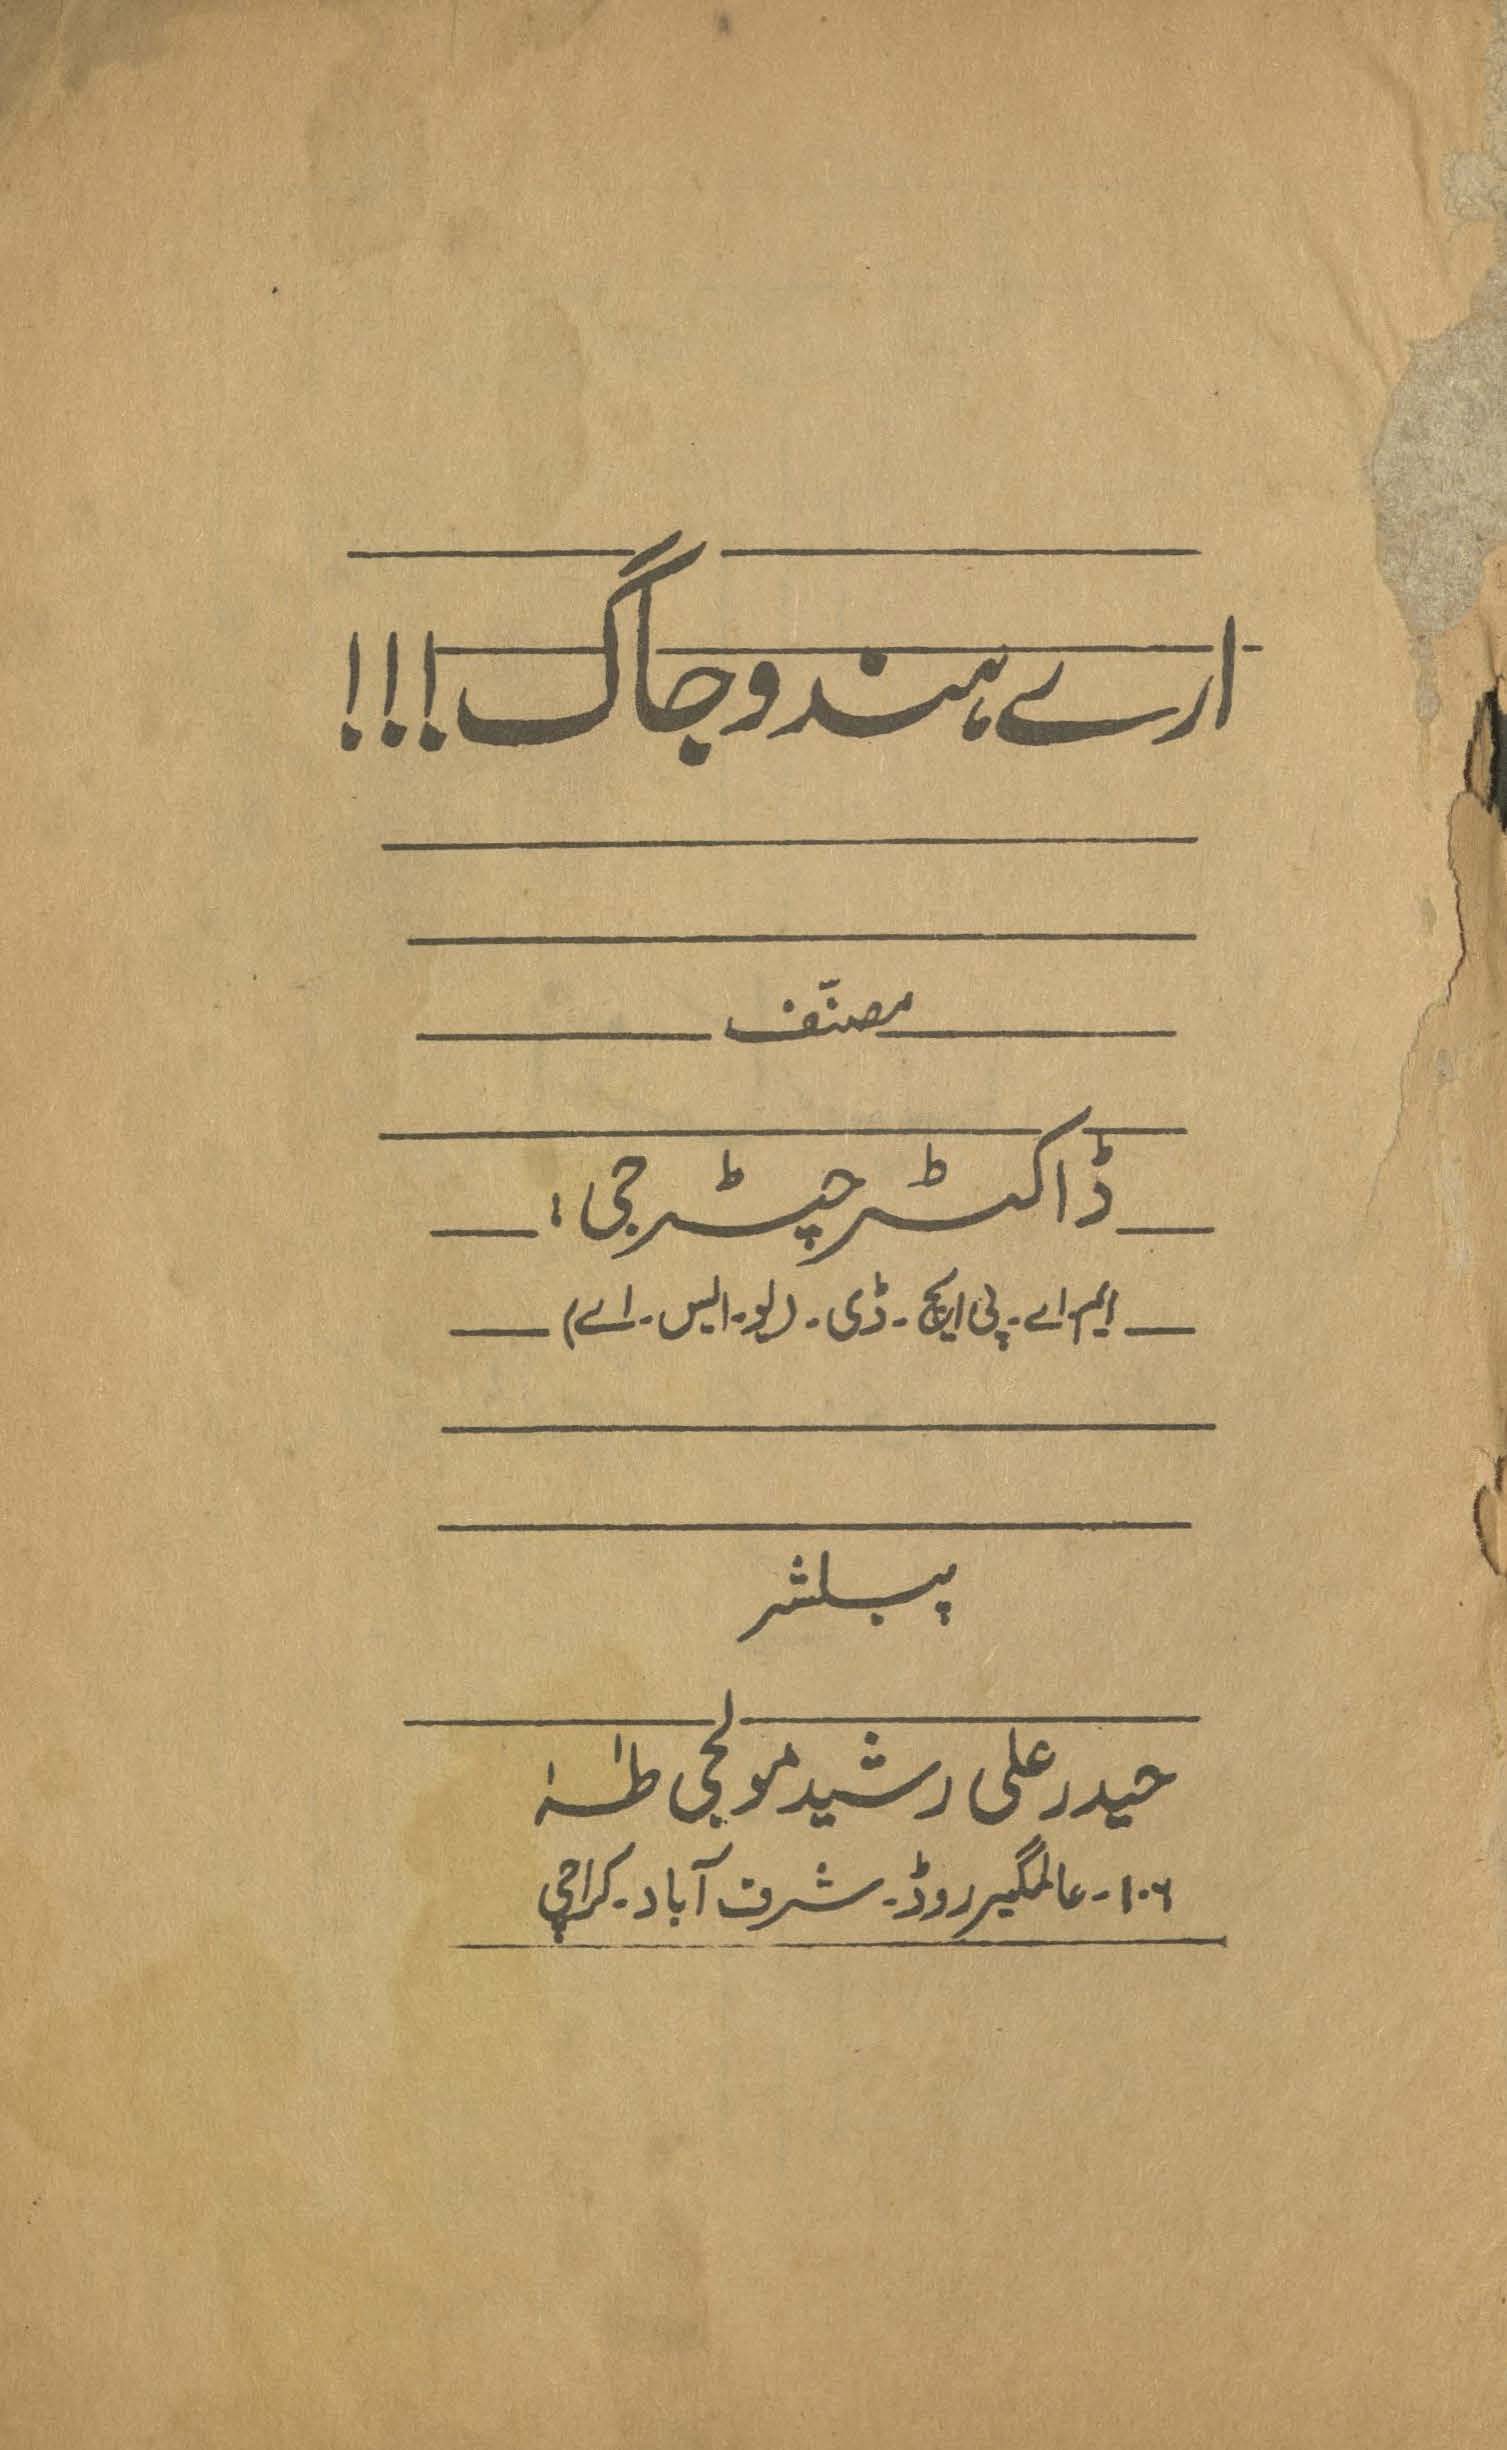 ارے ہندو جاگ!!!
مصنّف
ڈاکٹر چٹرجی:
ایم۔اے۔ پی ایچ۔ ڈی۔ (یو۔ایس۔اے)
پبلشر
حیدر علی رشید مولجی طٰہٰ
۱۰۶۔ عالمگیر روڈ۔ شرف آباد۔ کراچی